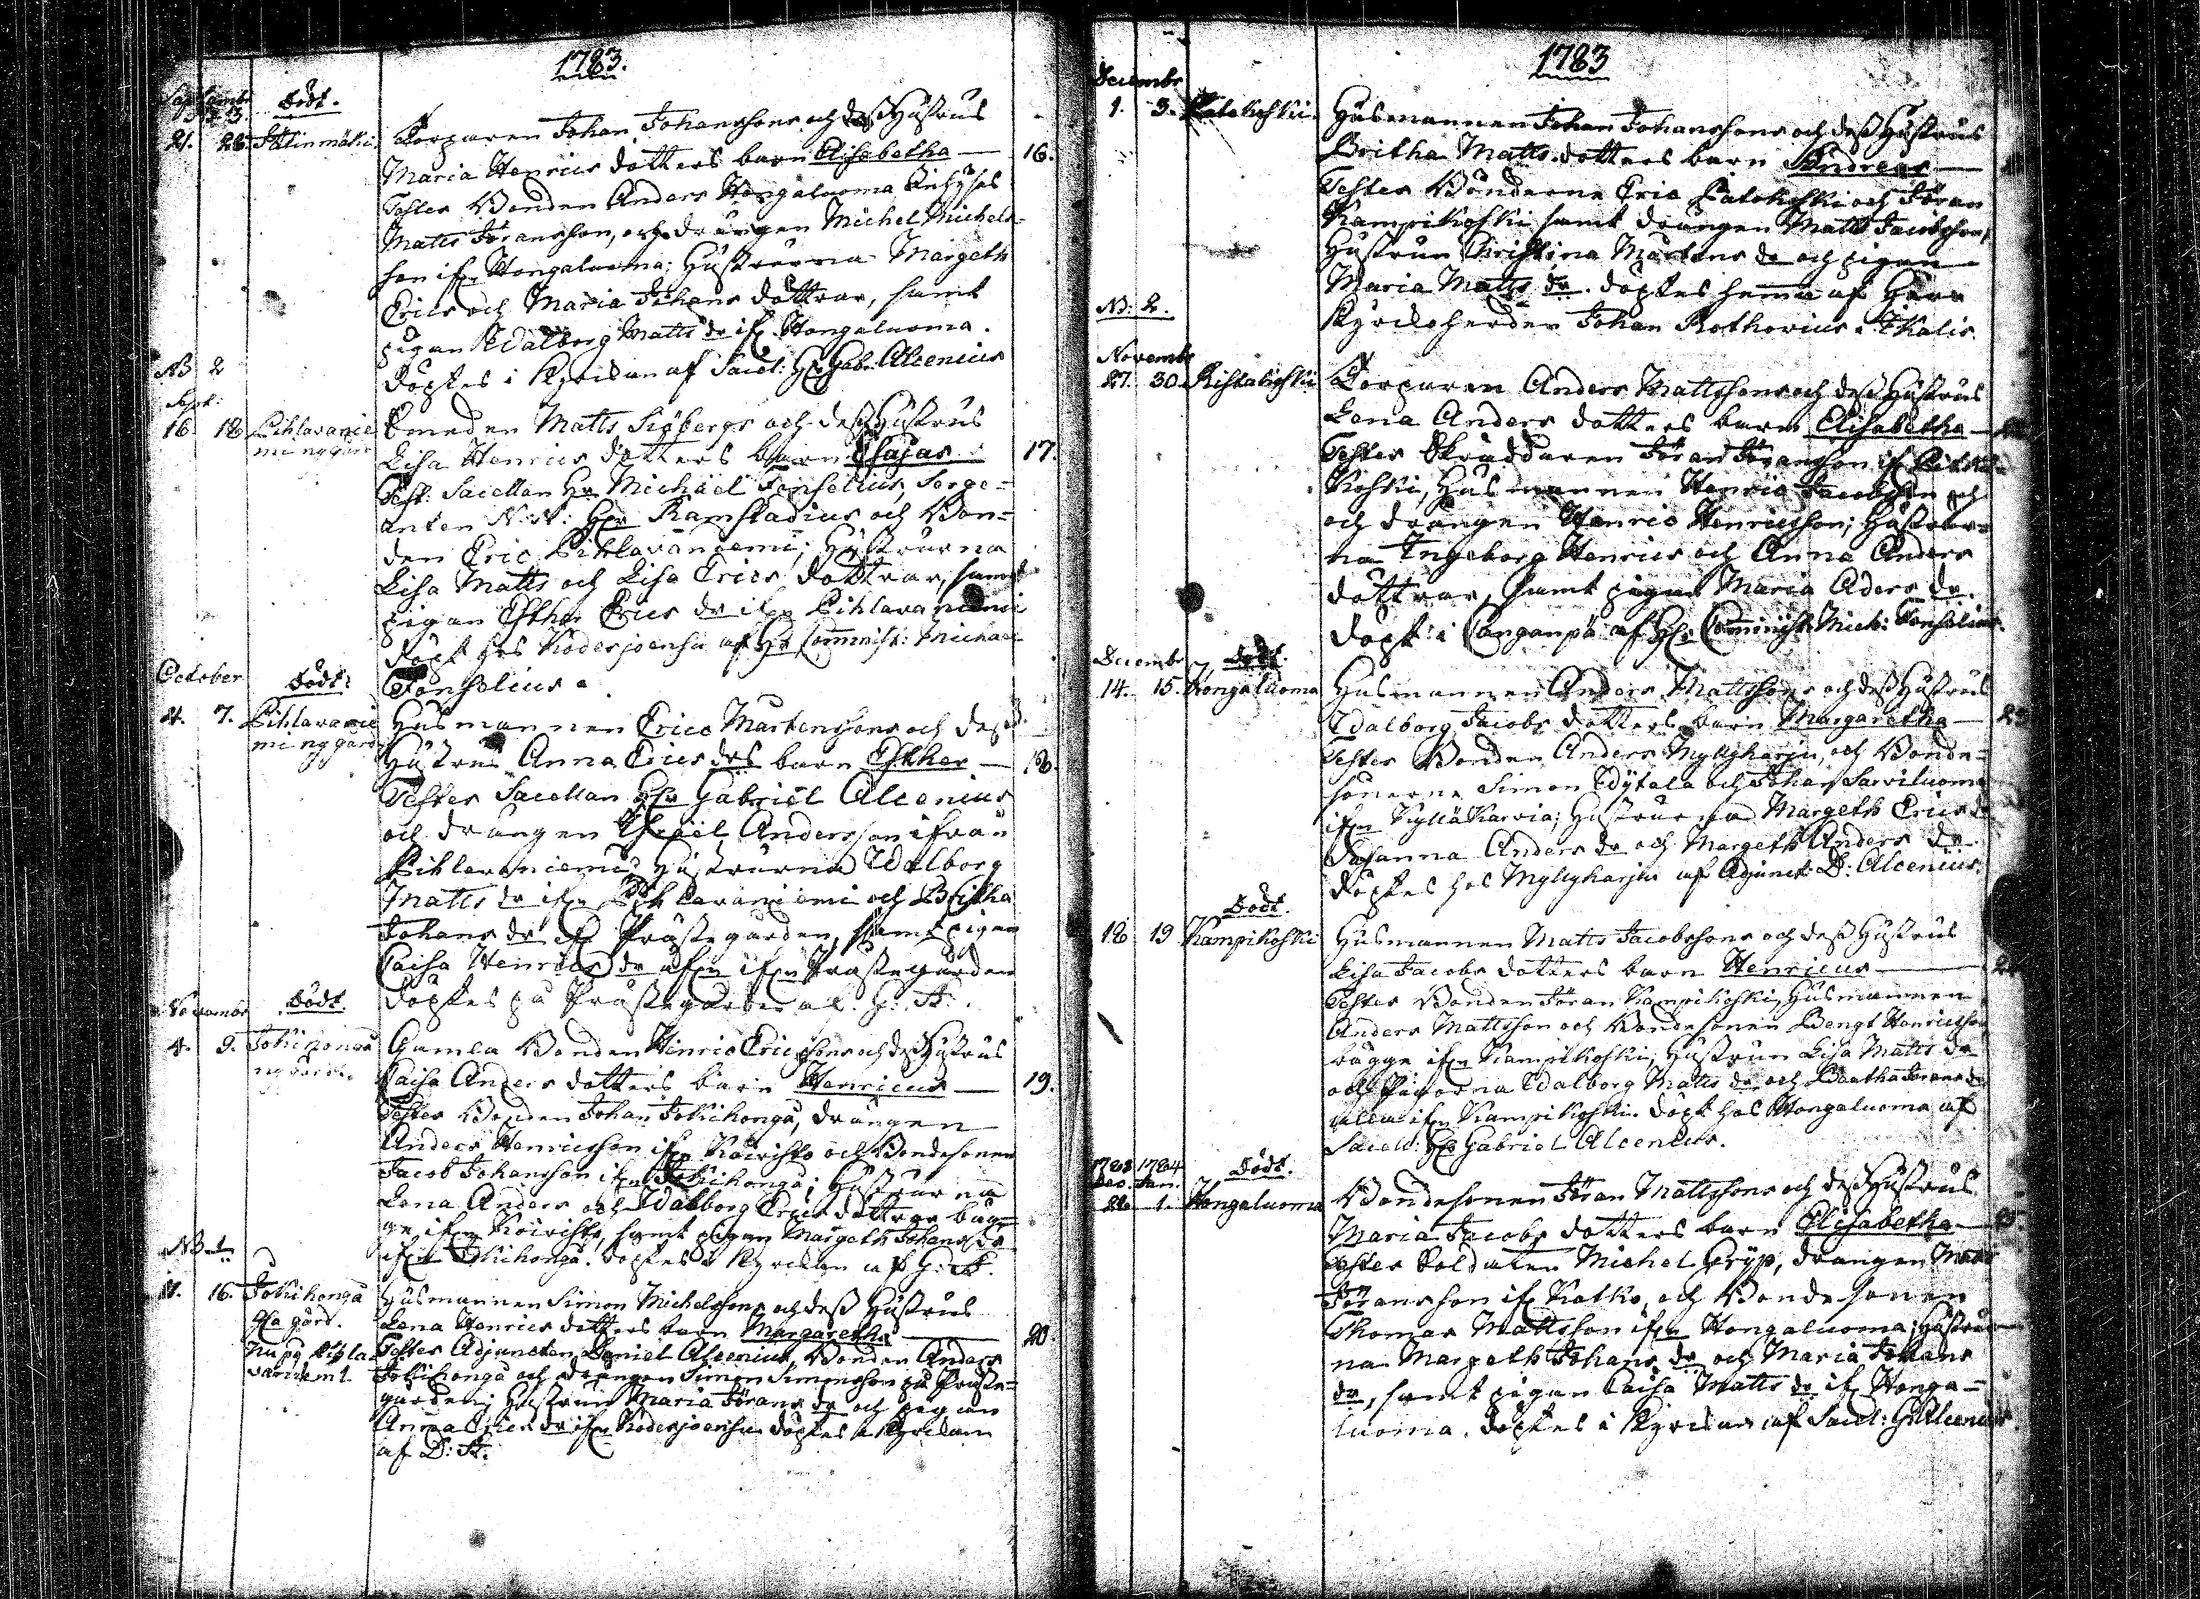 1783.
Septembr
Född.
21. 28. Torparen Johan Johanssons och deß Hustrus
Maria Henrics dotters barn Elisabetha — 16.
Testes Bonden Anders Hongaluoma
Matts Göransson, och drängen Michel Michels-
son ifrn Hongaluoma; Hustrurna Margeth
Erics och Maria Johans döttrar, samt
pigan Walborg Matts dr ifrn Hongaluoma.
döptes i Kyrckan af Sacel: Hr Gab. Alcenius
NB 2
Sept:
16 18 Pihlavanie
mi nygård
Smeden Matts Siöbergs och deß Hustrus
Lisa Henrics dotters barn Esajas 17.
Test: Sacellan Hr Michael Fonselius, Serge-
anten N:N: Hr Ramstadius och Bon-
den Eric Pihlavaniemi; Hustrurna
Lisa Matts och Lisa Erics döttrar, samt
pigan Esther Erics dr ifrn Pihlavaniemi
döpt hos Kodesjoensu af Hr Comminist: Michael
Fonselius.
October
Född.
4. 7. Pihlavanie
mi nygård
Husmannen Erics Mårtenssons och deß
Hustrus Anna Erics drs barn Esther — 18.
Testes Sacellan Hr Gabriel Alcenius
och drängen Andersson ifrån
Pihlavaniemi; Hustrurna Walborg
Matts dr ifrn Pihlavaniemi och Britha
Johans dr ifrn Prästegården, samt pigan
Caisa Henrics dr ifrn Prästegården
döptes på Prästegården af G: A:.
Novembr
Född.
4. 9. Jokihonga
nygård.
Gamla Bonden Hinric Ericssons och deß Hustrus
Caisa Anders dotters barn Henricus — 19.
Testes Bonden Johan Jokihonga, drängen
Anders Henricsson ifrn Koivisto och Bondesonen
Jacob Johansson ifrn Jokihonga; Hustrurna
Lena Anders och Walborg Erics döttrar båg-
ge ifrn Koivisto, samt pigan Margeth Johans dr
ifrn Jokihonga. döptes i Kyrckan af G: A.
NB 1
11. 16. Jokihonga
gård.
Nu på Pihla
vaniemi.
Husmannen Simon Michelssons och deß Hustrus
Lena Henrics dotters barn Margaretha 20.
Testes Adjuncten Daniel Alcenius, Bonden Anders
Jokihonga och drängen Simon Simonsson på Präste-
gården; Hustrun Maria Görans dr och pigan
Anna Erics dr ifrn Kodesjoensu döptes i Kyrckan
af D: A.
1783
Decembr
1. 3. Patokoski
Husmannen Johan Johanssons och deß Hustrus
Britha Matts dotters barn Andreas —
Testes Bönderne Eric Patokoski och Göran
Kampikoski samt drängen Matts Jacobsson,
Hustrun Christina Mårtens dr och pigan
Maria Matts dr. döptes hemma af Herr
Kyrckoherden Johan Rothovius i Ikalis.
NB: 2.
Novembr
27. 30. Ristakoski
Torparen Anders Mattssons och deß Hustrus
Lena Anders dotters barn Elisabetha —
Testes Skräddaren Göran Göransson
Koski, Husmannen Henric Jacobsson och
och drängen Henric Henricsson; Hustrur-
na Ingeborg Henrics och Anna Anders
döttrar, samt pigan Maria Aders dr.
döpt i Canganpä af Hr Comminist: Mich: Fonselius.
Decembr
Född.
14. 15. Hongaluoma
Husmannen Anders Mattssons och deß Hustrus
Walborg Jacobs dotters barn Margaretha —
Testes Bonden Anders Myllyharju, och Bonde-
sönerne Simon och Johan Sarviluoma
ifrn Kyllä Karvia; Hustrurna Margeth Erics dr
Susanna Anders dr och Margeth Anders dr.
döptes hos Myllyharju af Adjunct: D: Alcenius.
Född.
18 19 Kampikoski
Husmannen Matts Jacobssons och deß Hustrus
Lisa Jacobs dotters barn Henricus —
Testes Bonden Göran Kampikoski, Husmannen
Anders Mattsson och Bondesonen Bengt Henricsson
bägge ifrn Kampikoski; Hustrun Lisa Matts dr
och Pigorna Walborg Matts dr och Görans dr
alla ifrn Kampikoski. döpt hos Hongaluoma af
Sacell: Hr Gabriel Alcenius.
1783 1784
Dec. Jan.
Född.
1. Hongaluoma
Bondesonen Göran Mattssons och deß Hustrus
Maria Jacobs dotters barn Elisabetha —
Testes Soldaten Michel Gryp, drängen Matts
Göransson ifrn Katko, och Bondesonen
Thomas Mattsson ifrn Hongaluoma; Hustrur-
na Margeth Johans dr och Maria Johans
dr, samt pigan Caisa Matts dr ifrn Honga-
luoma. döptes i Kyrckan af Sacel: G: Alcenius